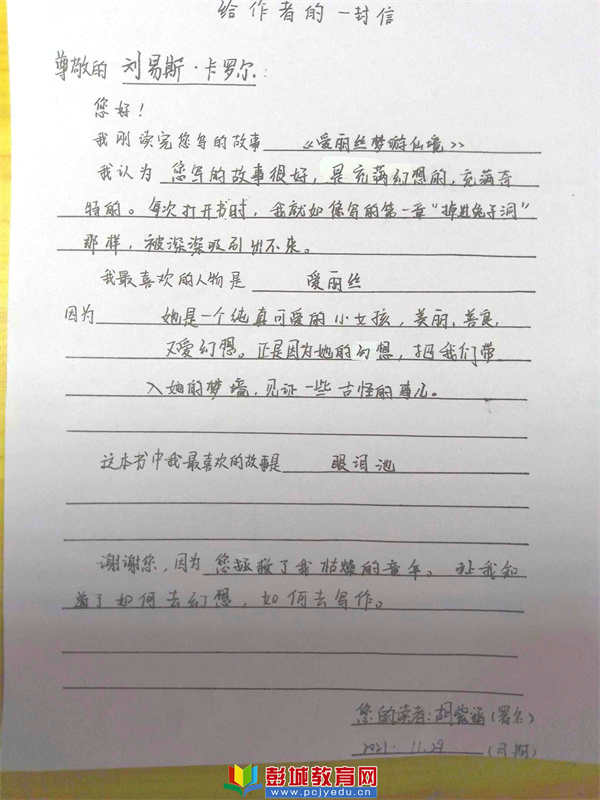 给作者的一封信
尊敬的 刘易斯·卡罗尔:
您好!
我刚读完您写的故事 《爱丽丝梦游仙境》
我认为 您写的故事很好,是充满幻想的,充满奇
特的。每次打开书时,我就如您写的第一章“掉进兔子洞”
那样,被深深吸引出不来。
我最喜欢的人物是 爱丽丝
因为 她是一个纯真可爱的小女孩,美丽、善良,
又爱幻想。正是因为她的幻想,把我们带
入她的梦境,见证一些古怪的事儿。
这本书中我最喜欢的故事是 眼泪池
谢谢您,因为 您拯救了我枯燥的童年。让我知
道了如何去幻想,如何去写作。
您的读者:胡紫涵(署名)
2021.11.29 (日期)
彭城教育网
www.pcjyedu.cn